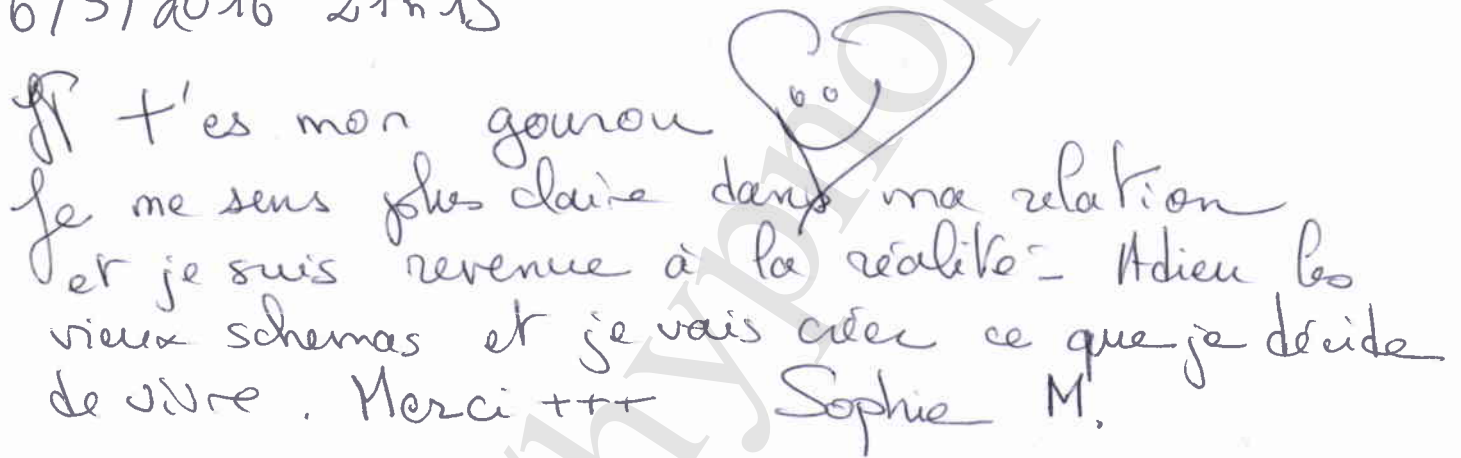 6/5/2016 21h15
t'es mon gourou
Je me sens plus claire dans ma relation
et je suis revenue à la réalité - Adieu les
vieux schemas et je vais créer ce que je décide
de vivre. Merci +++ Sophie M.
hypno